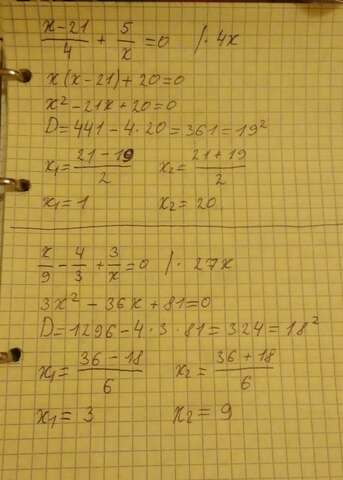 (x-21)/4 + 5/x = 0 /· 4x
x(x-21)+20=0
x² - 21x + 20 = 0
D = 441 - 4·20 = 361 = 19²
x₁ = (21-19)/2 x₂ = (21+19)/2
x₁ = 1 x₂ = 20
x/9 - 4/3 + 3/x = 0 /· 27x
3x² - 36x + 81 = 0
D = 1296 - 4·3·81 = 324 = 18²
x₁ = (36-18)/6 x₂ = (36+18)/6
x₁ = 3 x₂ = 9